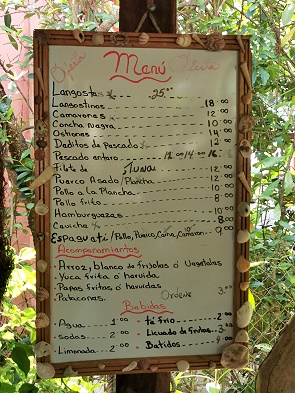 Menú
Langostas 25.00
Langostinos 18.00
Camarones 12.00
Concha negra 10.00
Ostiones 14.00
Deditos de pescado 12.00
Pescado entero 12.00 14.00 16.00
Filete de Tuna 12.00
Puerco Asado/Plancha 12.00
Pollo a la Plancha 10.00
Pollo frito 8.00
Hamburguezas 10.00
Ceviche 8.00
Espaguati/Pollo, Puerco, Carne, Camaron 9.00
Acompañamientos
• Arroz, blanco de frijoles ó Vegetales
• Yuca frita ó hervida
• Papas fritas ó hervidas
• Patacones. Ordenes 3.00
Bebidas
• Agua 2.00 • té frio 2.00
• Sodas 2.00 • Licuado de frutas 3.00
• Limonada 2.00 • Batidos 4.00